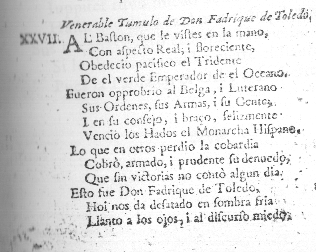 Venerable Tumulo de Don Fadrique de Toledo,
XXVII. AL Baston, que le vistes en la mano,
Con aspecto Real, i floreciente,
Obedeciò pacifico el Tridente
De el verde Emperador de el Oceano.
Fueron opprobrio al Belga, i Luterano
Sus Ordenes, sus Armas, i su Gente,
I en su consejo, i braço, felizmente
Venciò los Hados el Monarcha Hispano.
Lo que en otros perdiò la cobardia
Cobrò, armado, i prudente su denuedo,
Que sin victorias no contò algun dia.
Esto fue Don Fadrique de Toledo,
Hoi nos da desatado en sombra fria
Llanto a los ojos, i al discurso miedo.